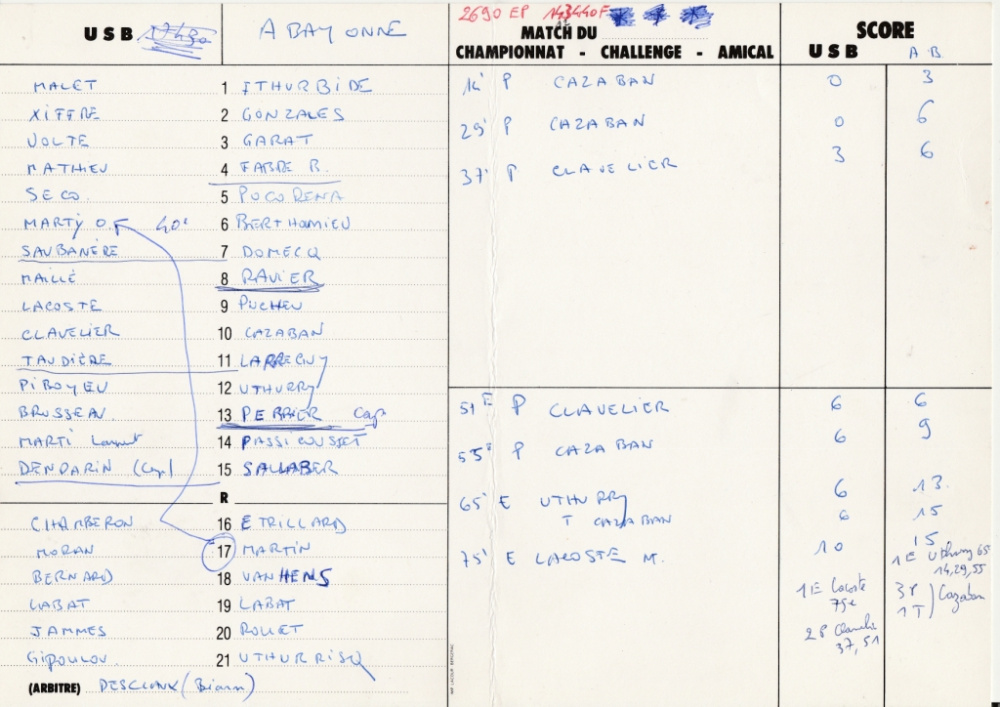 U S B A BAYONNE
2690 EP 143440F
MATCH DU
CHAMPIONNAT - CHALLENGE - AMICAL
SCORE
U S B A B
MALET 1 ITHURBIDE
XIFFRE 2 GONZALES
VOLTE 3 GARAT
MATHIEU 4 FABRE B.
SECO 5 POCORENA
MARTY O.F 40' 6 BERTHOMIEU
SAUBANÈRE 7 DOMECQ
MAILLÉ 8 RAVIER
LACOSTE 9 PUCHEU
CLAVELIER 10 CAZABAN
TAUDIÈRE 11 LARREGUY
PIBOYEU 12 UTHURRY
BRUSSEAU 13 PERRIER Cap
MARTI Laurent 14 PASSICOUSSET
DENDARIN (Cap) 15 SALLABER
R
CHAMBERON 16 ETRILLARD
MORAN 17 MARTIN
BERNARD 18 VANHENS
LABAT 19 LABAT
JAMMES 20 ROUET
GIPOULOU 21 UTHURRISQ
(ARBITRE) DESCLAUX (Biarn)
14' P CAZABAN 0 3
29' P CAZABAN 0 6
37' P CLAVELIER 3 6
51E P CLAVELIER 6 6
55E P CAZABAN 6 9
65' E UTHURRY 6 13
T CAZABAN 6 15
75' E LACOSTE M. 10 15
1E Lacoste
75e
2P Clavelier
37, 51
1E Uthurry 65
14,29,55
3P
1T ) Cazaban